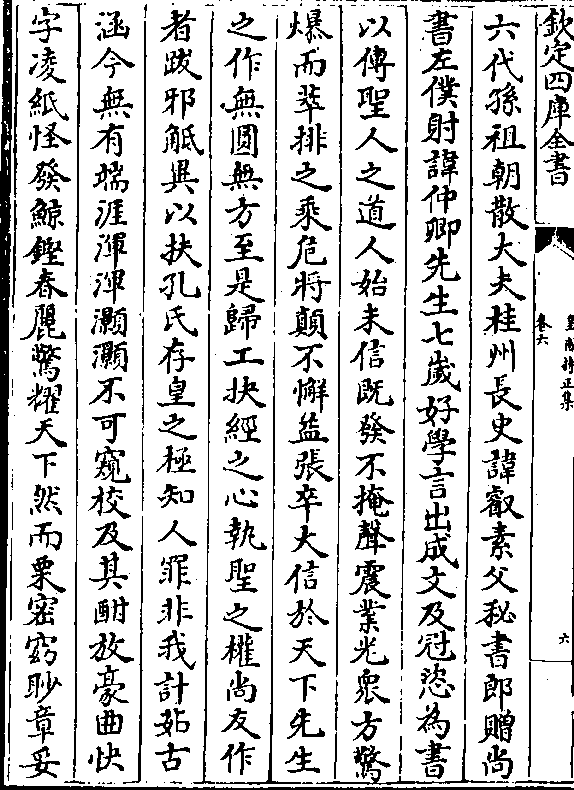 欽定四庫全書
皇甫持正集
卷六
六
六代孫祖朝散大夫桂州長史諱叡素父秘書郎贈尚
書左僕射諱仲卿先生七歲好學言出成文及冠恣為書
以傳聖人之道人始未信既發不掩聲震業光衆方驚
爆而萃排之乘危將顛不懈益張卒大信於天下先生
之作無圓無方至是歸工抉經之心執聖之權尚友作
者跋邪觝異以扶孔氏存皇之極知人罪非我計茹古
涵今無有端涯渾渾灝灝不可窺校及其酣放豪曲快
字凌紙怪發鯨鏗春麗驚耀天下然而栗密窈眇章妥